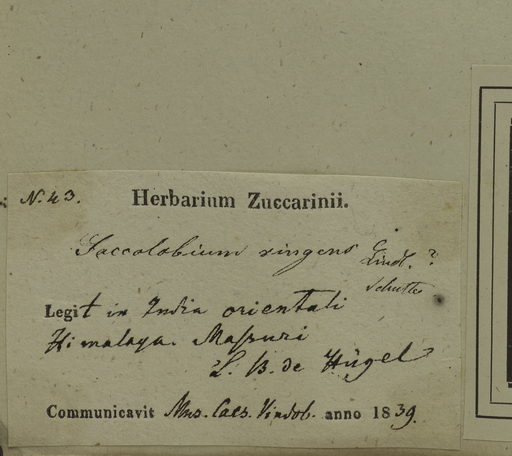 N. 43. Herbarium Zuccarinii.
Saccolabium ringens Lindl. ?
Legit in India orientali
Himalaya. Massuri
L. B. de Hügel
Communicavit Mus. Caes. Vindob. anno 1839.